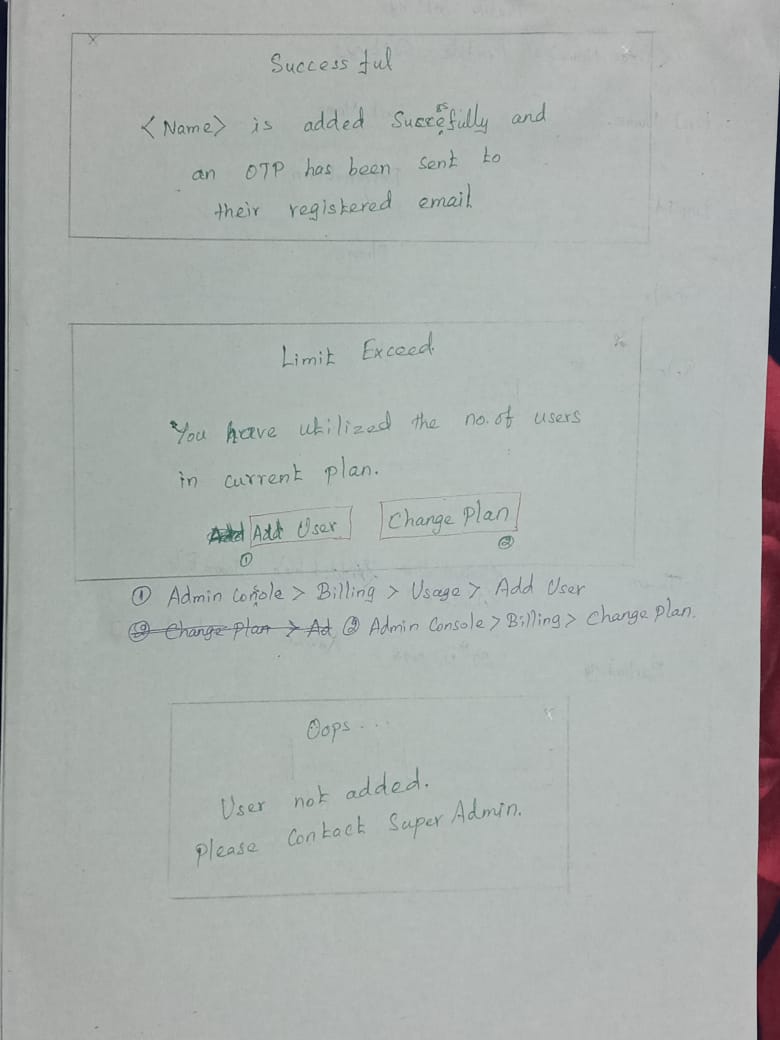 x
Successful
<Name> is added Succesfully and
an OTP has been sent to
their registered email
Limit Exceed.
You have utilized the no. of users
in current plan.
Add User Change Plan
① ②
① Admin Console > Billing > Usage > Add User
② Change Plan > Ad ② Admin Console > Billing > Change Plan.
Oops...
User not added.
Please Contact Super Admin.